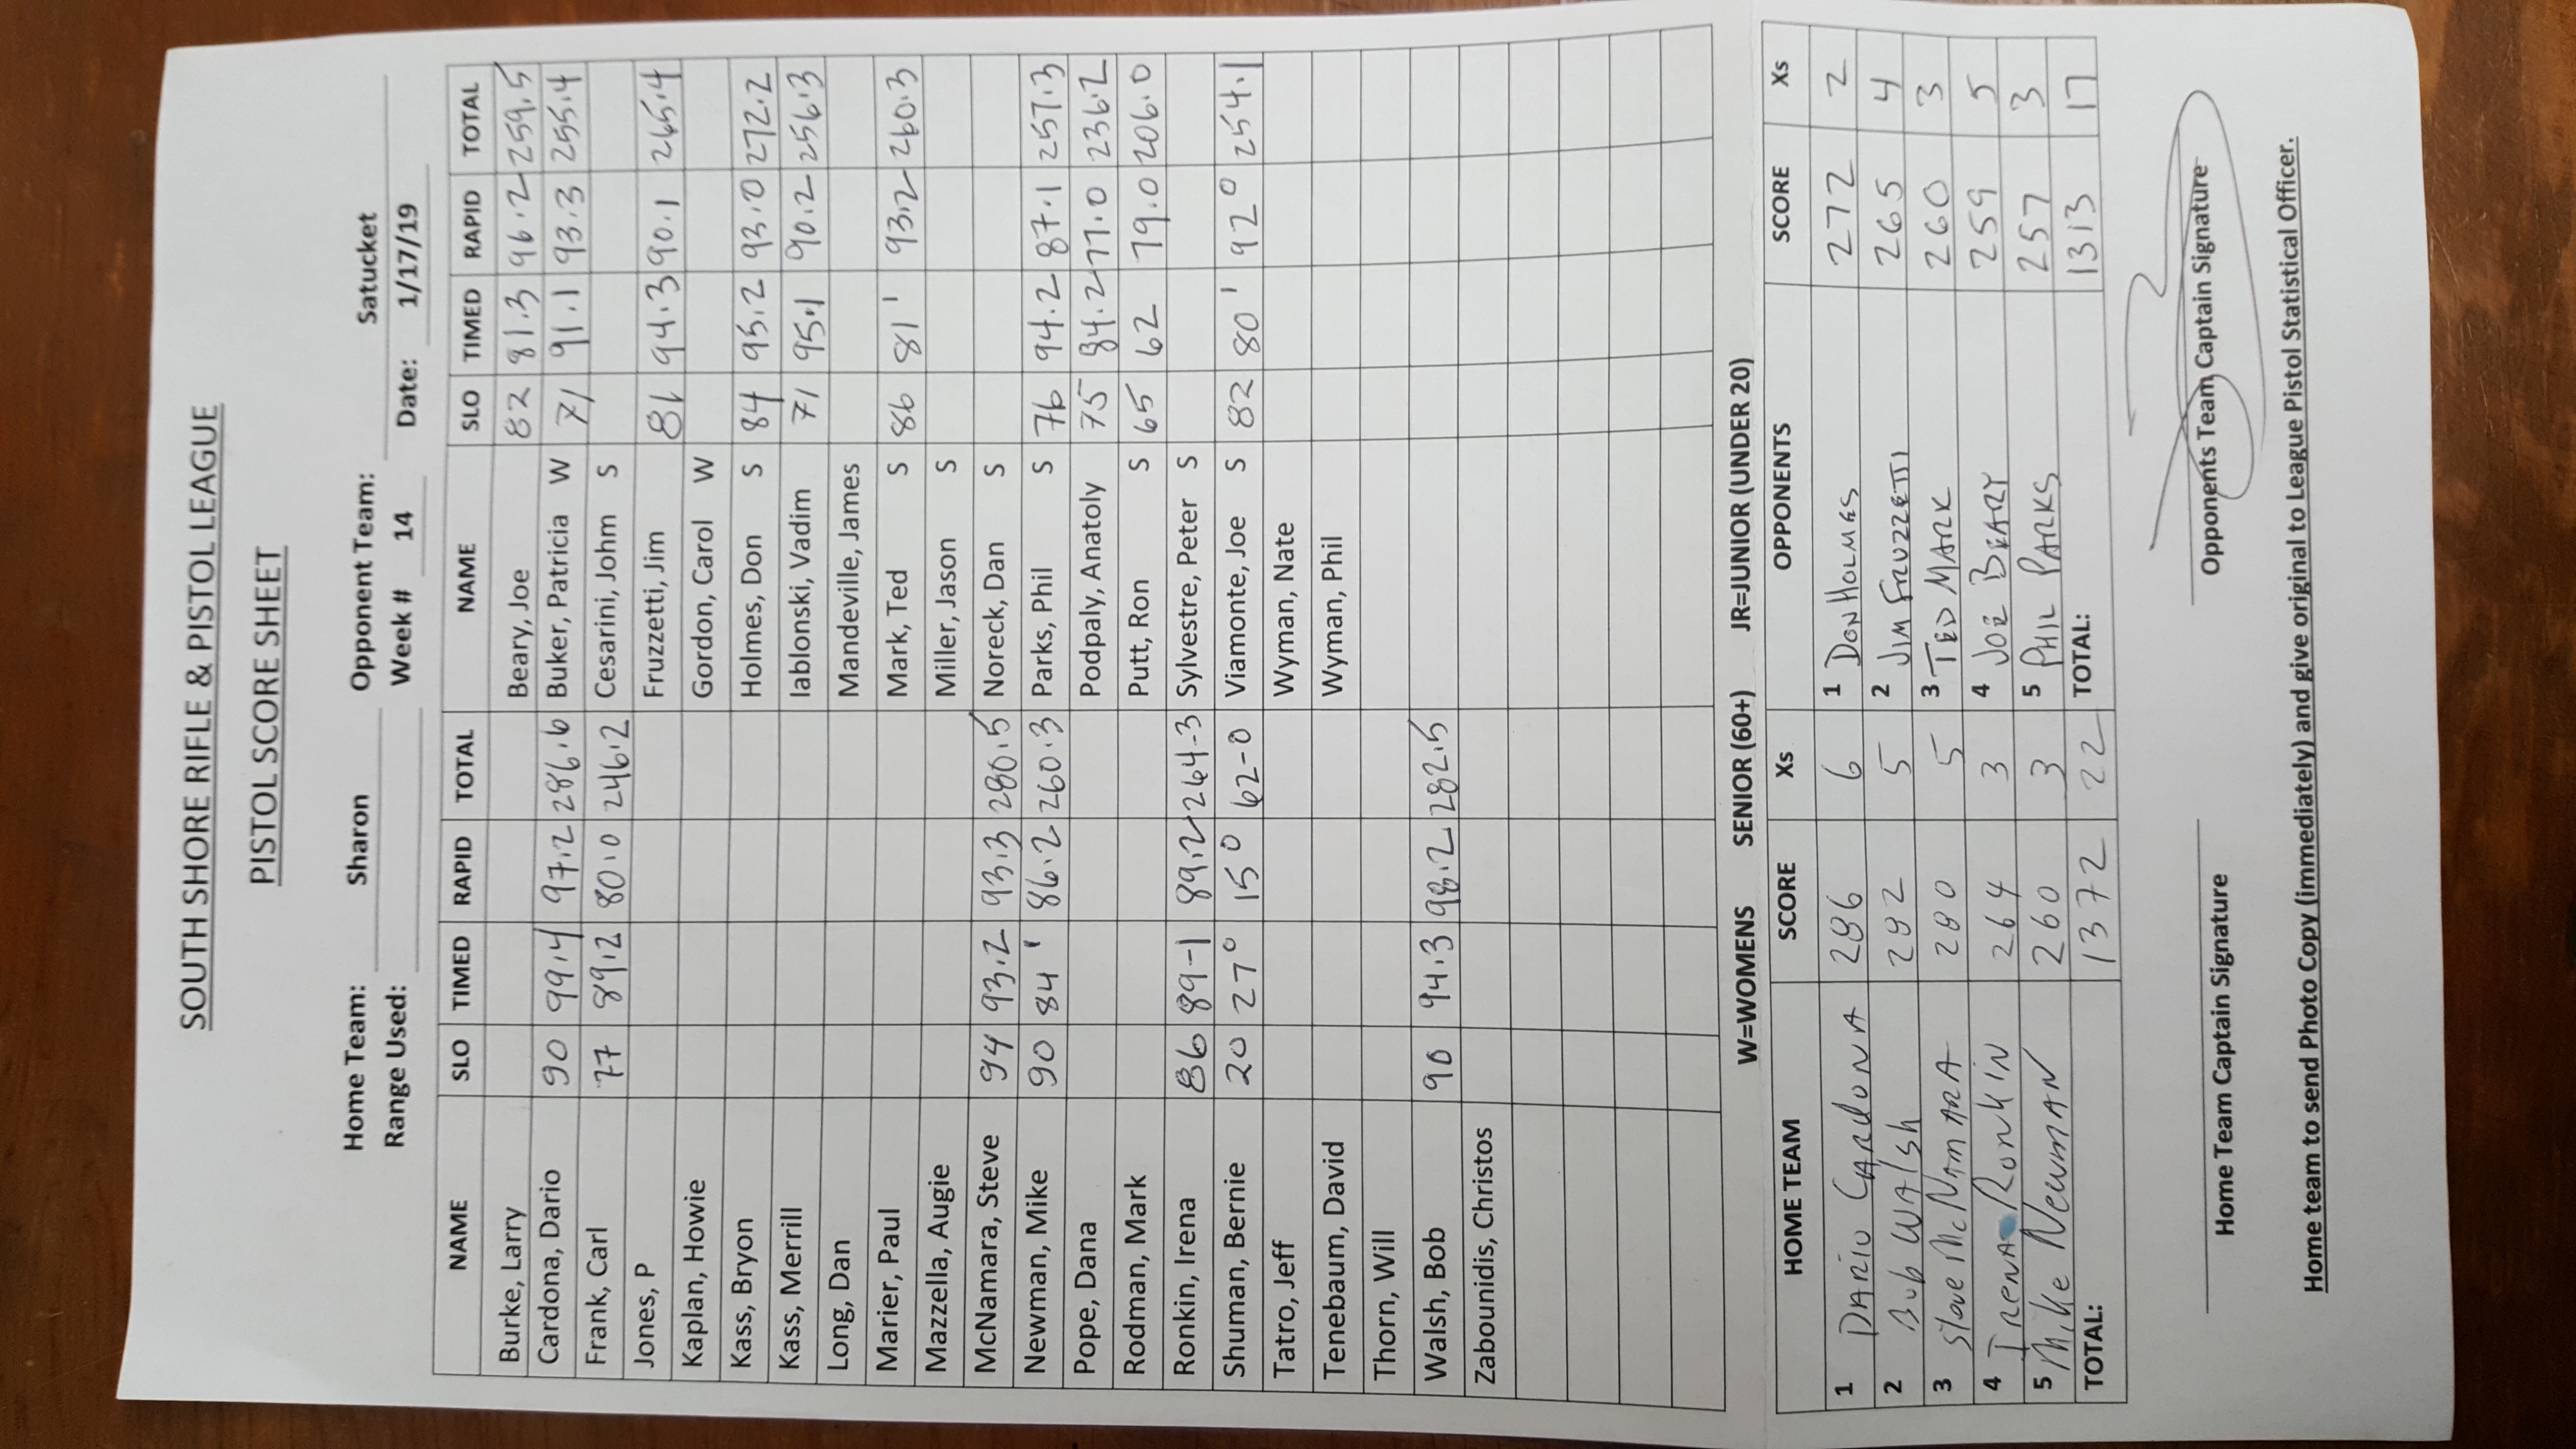 SOUTH SHORE RIFLE & PISTOL LEAGUE
PISTOL SCORE SHEET
Home Team: Sharon Opponent Team: Satucket
Range Used: Week # 14 Date: 1/17/19
NAME SLO TIMED RAPID TOTAL NAME SLO TIMED RAPID TOTAL
Burke, Larry Beary, Joe 82 81.3 96.2 259.5
Cardona, Dario 90 99.4 97.2 286.6 Buker, Patricia W 71 91.1 93.3 255.4
Frank, Carl 77 89.2 80.0 246.2 Cesarini, Johm S
Jones, P Fruzzetti, Jim 81 94.3 90.1 265.4
Kaplan, Howie Gordon, Carol W
Kass, Bryon Holmes, Don S 84 95.2 93.0 272.2
Kass, Merrill Iablonski, Vadim 71 95.1 90.2 256.3
Long, Dan Mandeville, James
Marier, Paul Mark, Ted S 86 81 1 93.2 260.3
Mazzella, Augie Miller, Jason S
McNamara, Steve 94 93.2 93.3 280.5 Noreck, Dan S
Newman, Mike 90 84 1 86.2 260.3 Parks, Phil S 76 94.2 87.1 257.3
Pope, Dana Podpaly, Anatoly 75 84.2 77.0 236.2
Rodman, Mark Putt, Ron S 65 62 79.0 206.0
Ronkin, Irena 86 89-1 89.2 264-3 Sylvestre, Peter S
Shuman, Bernie 20 27 0 15 0 62-0 Viamonte, Joe S 82 80 1 92 0 254.1
Tatro, Jeff Wyman, Nate
Tenebaum, David Wyman, Phil
Thorn, Will
Walsh, Bob 90 94.3 98.2 282.5
Zabounidis, Christos
W=WOMENS SENIOR (60+) JR=JUNIOR (UNDER 20)
HOME TEAM SCORE Xs OPPONENTS SCORE Xs
1 DARIO CARDONA 286 6 1 DON HOLMES 272 2
2 Bob WAlsh 282 5 2 JIM FRUZZETTI 265 4
3 Steve McNAmARA 280 5 3 TED MARK 260 3
4 IRENA RonkiN 264 3 4 JOE BEARY 259 5
5 Mike NewmAN 260 3 5 PHIL PARKS 257 3
TOTAL: 1372 22 TOTAL: 1313 17
Home Team Captain Signature Opponents Team Captain Signature
Home team to send Photo Copy (immediately) and give original to League Pistol Statistical Officer.